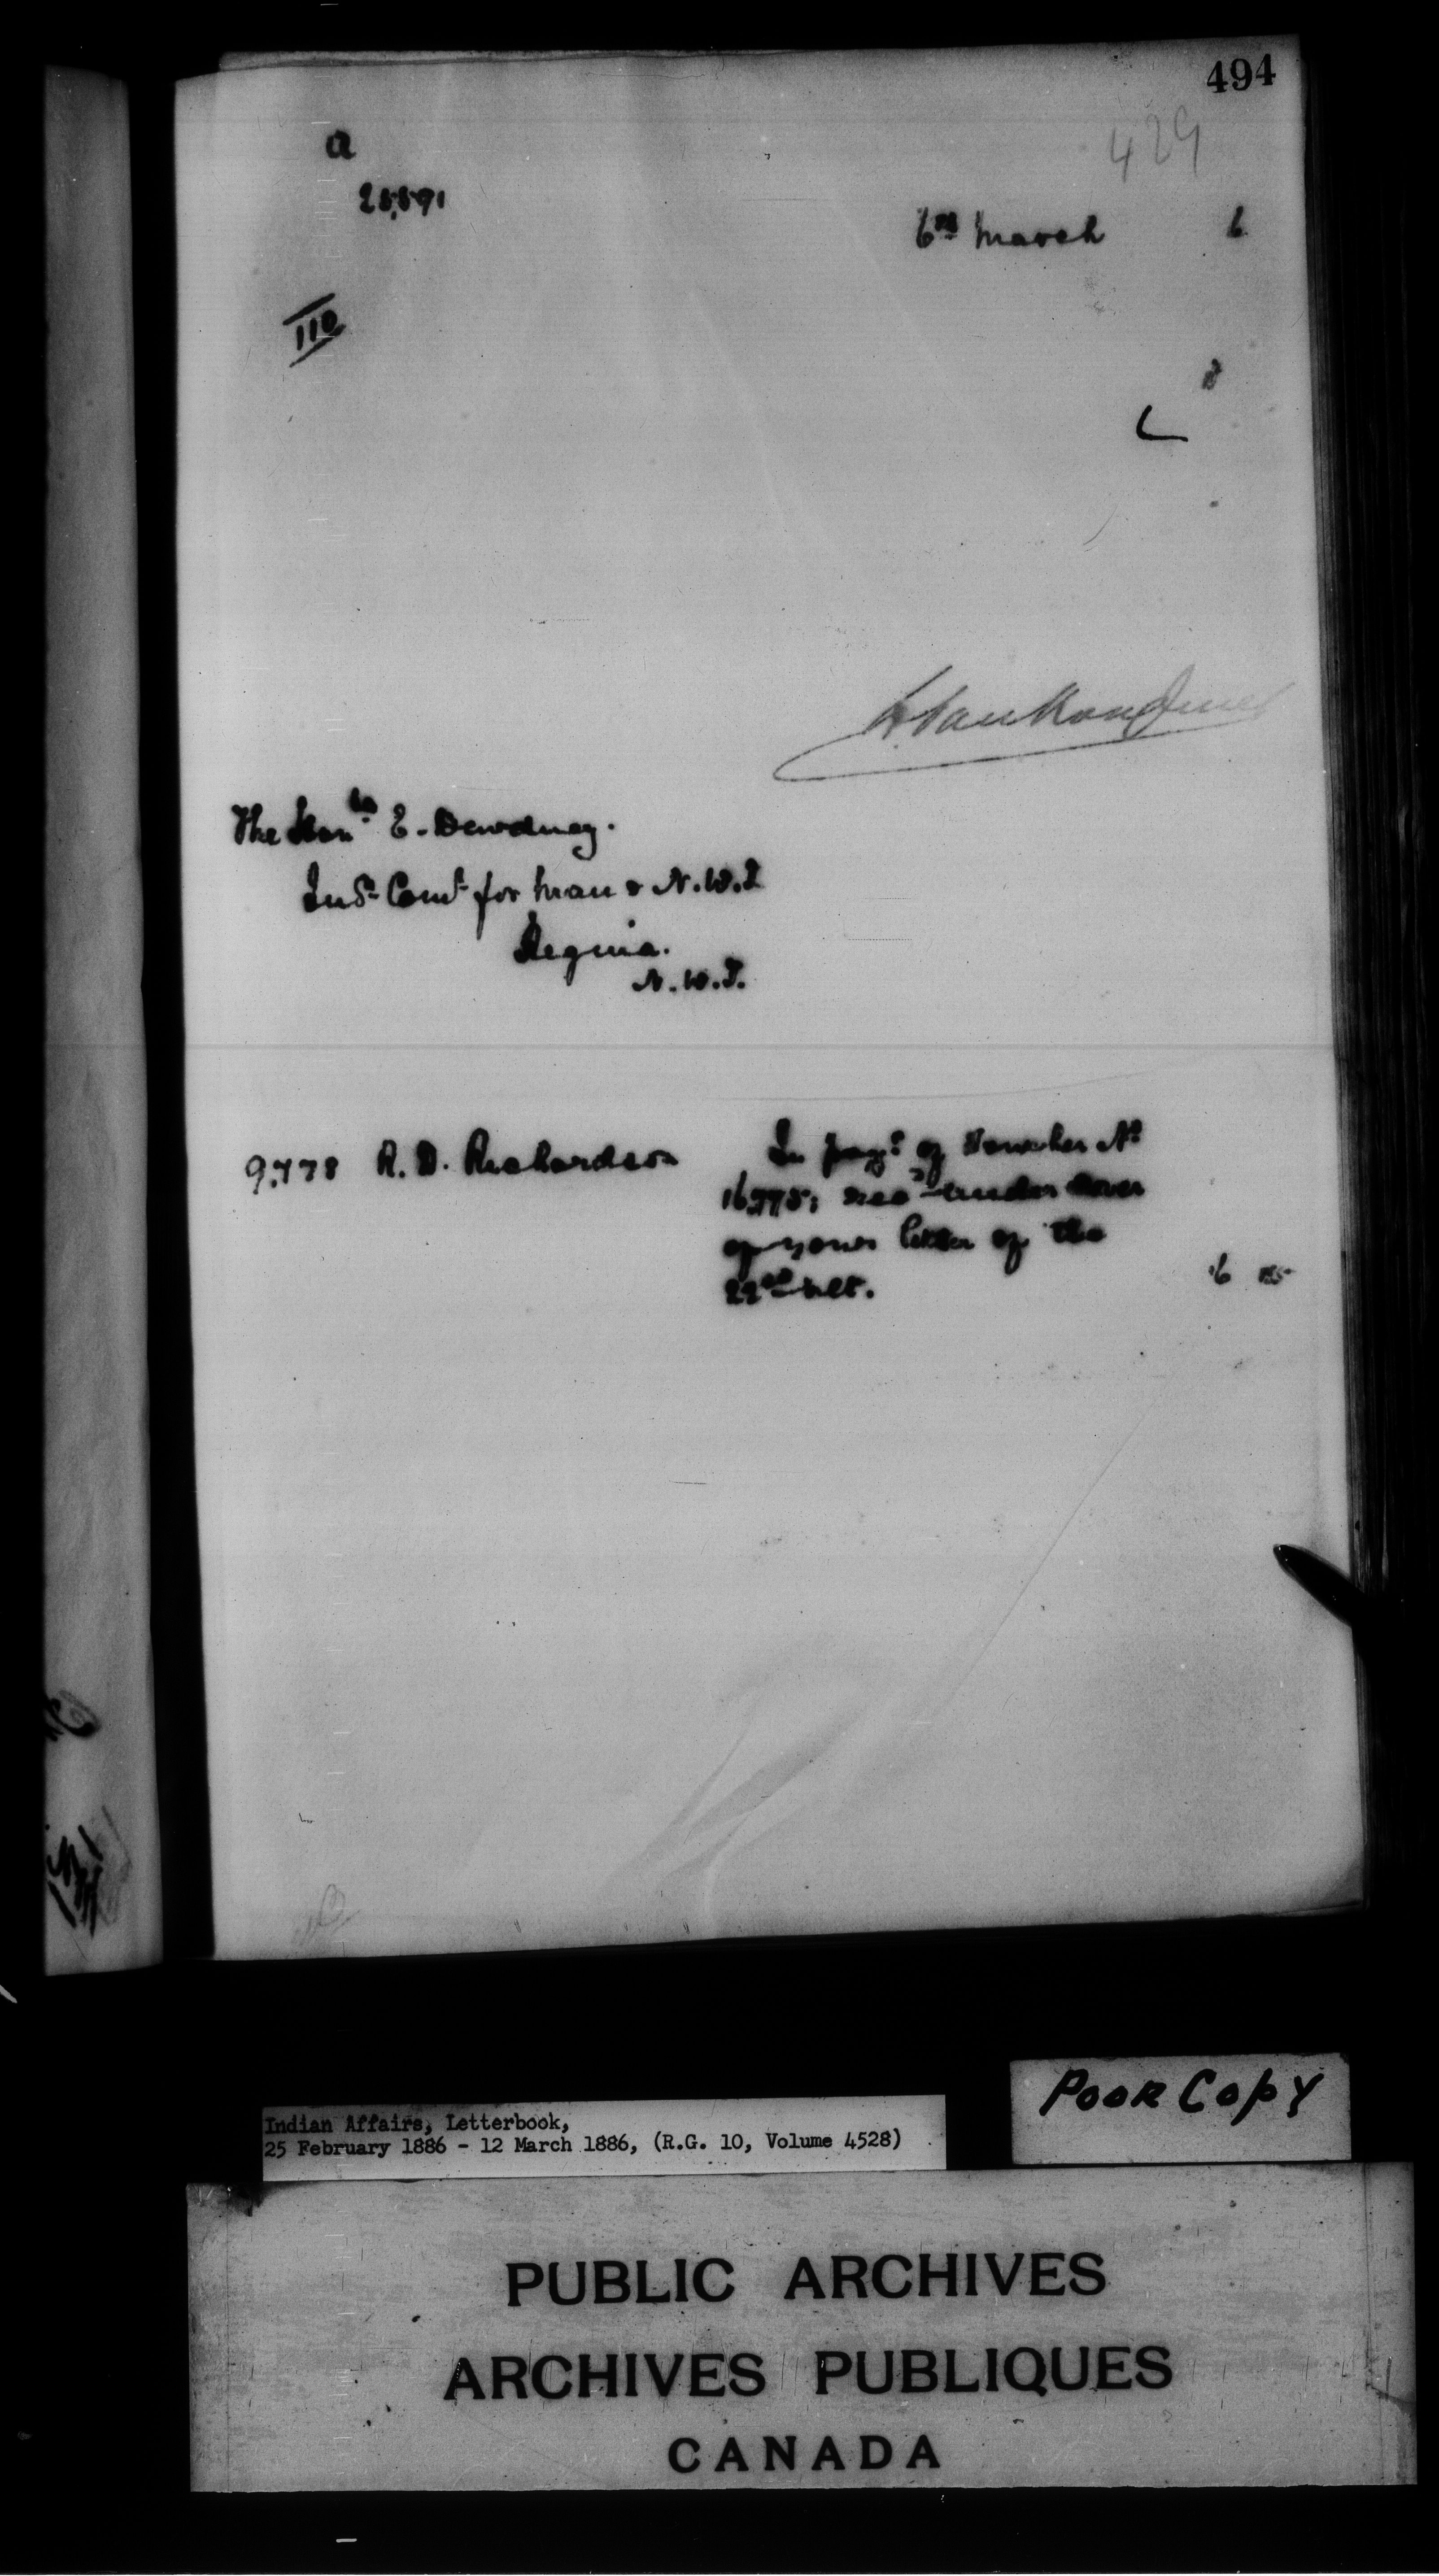 494
429
a
6th March 6
110
L. Vankoughnet
The Honble E. Dewdney.
Ind. Comr for Man & N.W.T
Regina.
N.W.T.
9,778 R. D. Richardson In payt of Voucher No
recd under cover
of your letter of the
22nd ult. 6
Poor Copy
Indian Affairs, Letterbook,
25 February 1886 - 12 March 1886, (R.G. 10, Volume 4528)
PUBLIC ARCHIVES
ARCHIVES PUBLIQUES
CANADA